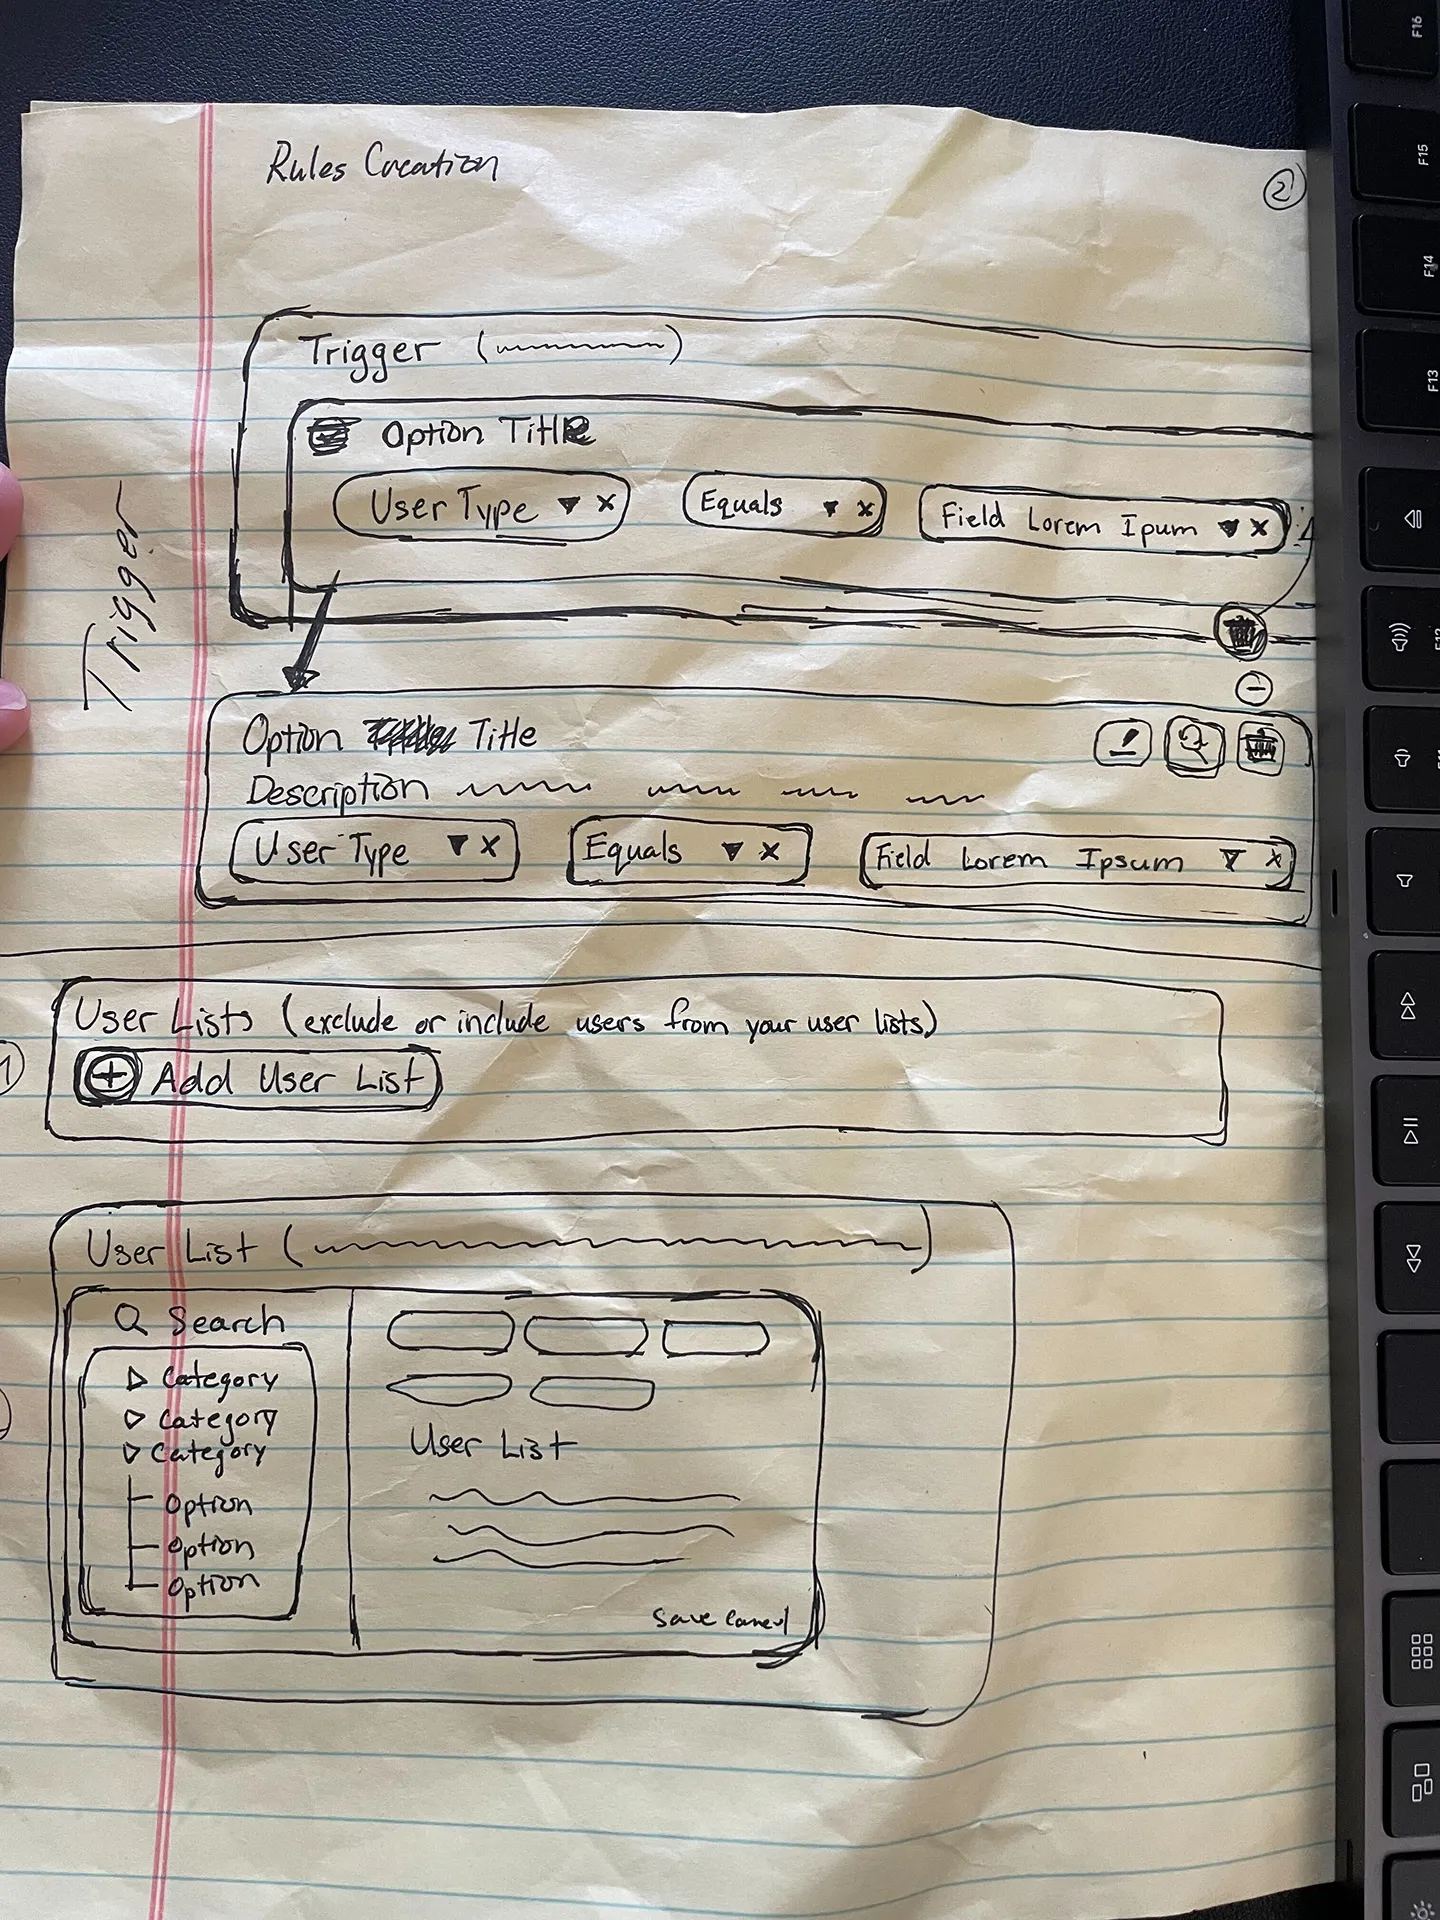 Rules Creation
2
Trigger
Trigger
Option Title
User Type ▼ x
Equals ▼ x
Field Lorem Ipum ▼ x
Option Title
Description
User Type ▼ x
Equals ▼ x
Field Lorem Ipsum ▼ x
User Lists (exclude or include users from your user lists)
1
+ Add User List
User List
Search
Category
Category
Category
Option
Option
Option
User List
Save Cancel
F16
F15
F14
F13
F12